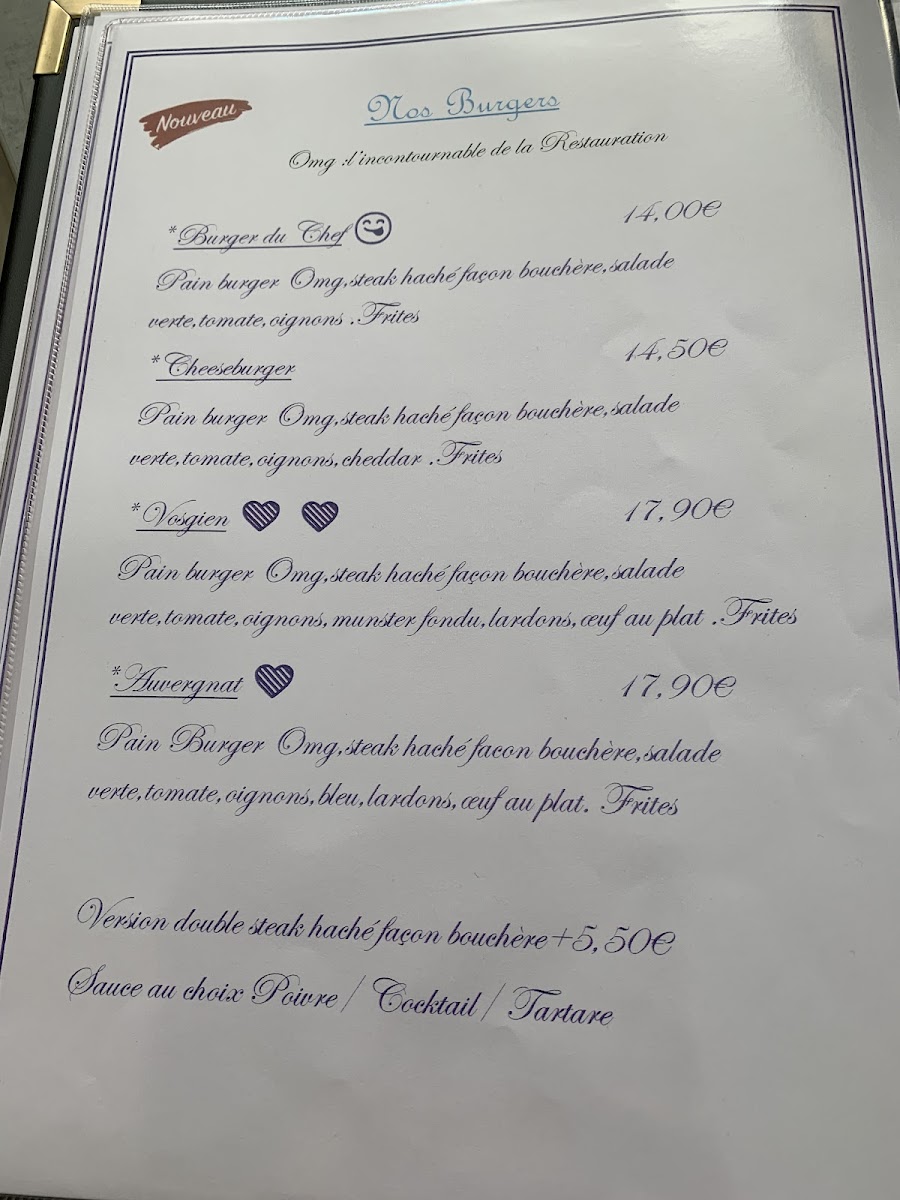 Nouveau
Nos Burgers
Omg :l'incontournable de la Restauration
*Burger du Chef 14,00€
Pain burger Omg,steak haché façon bouchère,salade
verte,tomate,oignons .Frites
*Cheeseburger 14,50€
Pain burger Omg,steak haché façon bouchère,salade
verte,tomate,oignons,cheddar .Frites
*Vosgien 17,90€
Pain burger Omg,steak haché façon bouchère,salade
verte,tomate,oignons, munster fondu,lardons,œuf au plat .Frites
*Auvergnat 17,90€
Pain Burger Omg,steak haché facon bouchère,salade
verte,tomate,oignons,bleu,lardons,œuf au plat. Frites
Version double steak haché façon bouchère+5,50€
Sauce au choix Poivre / Cocktail / Tartare